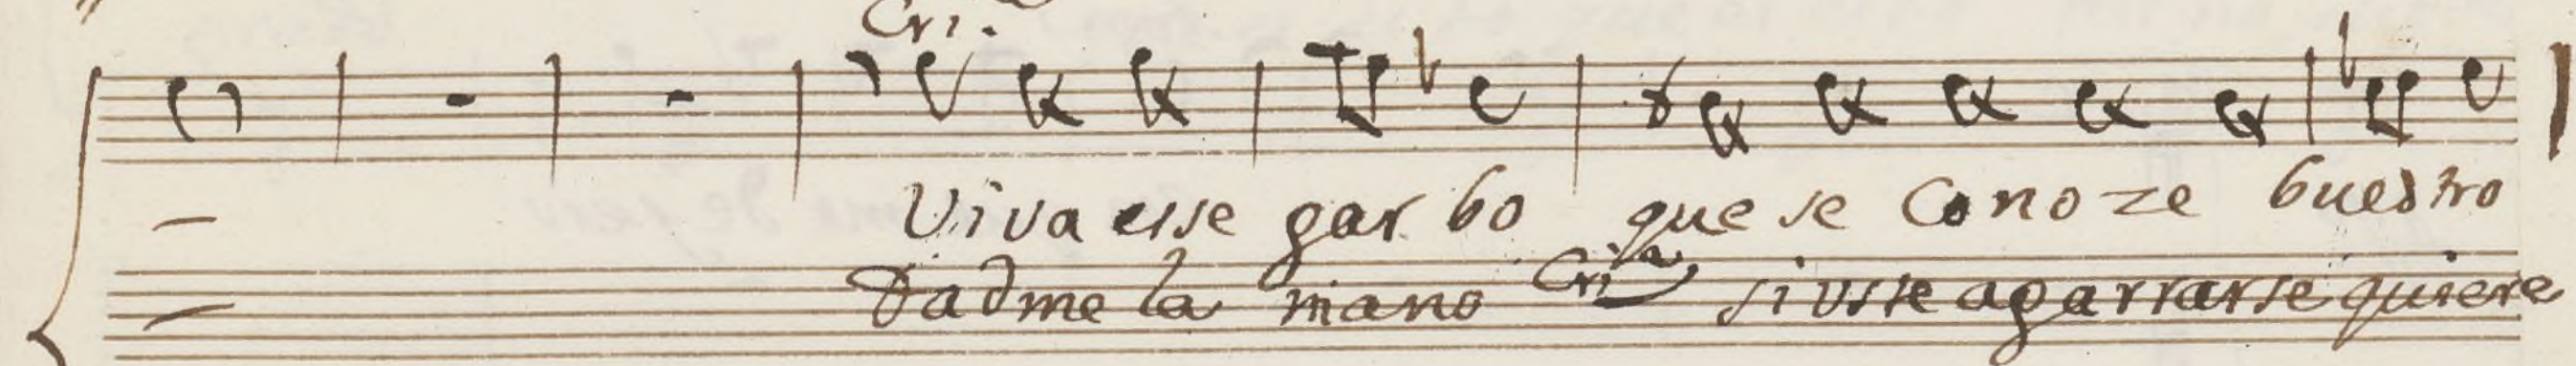 Cri.
Viva esse garbo que se Conoze buestro
Dadme la mano Cria si uste agarrarse quiere